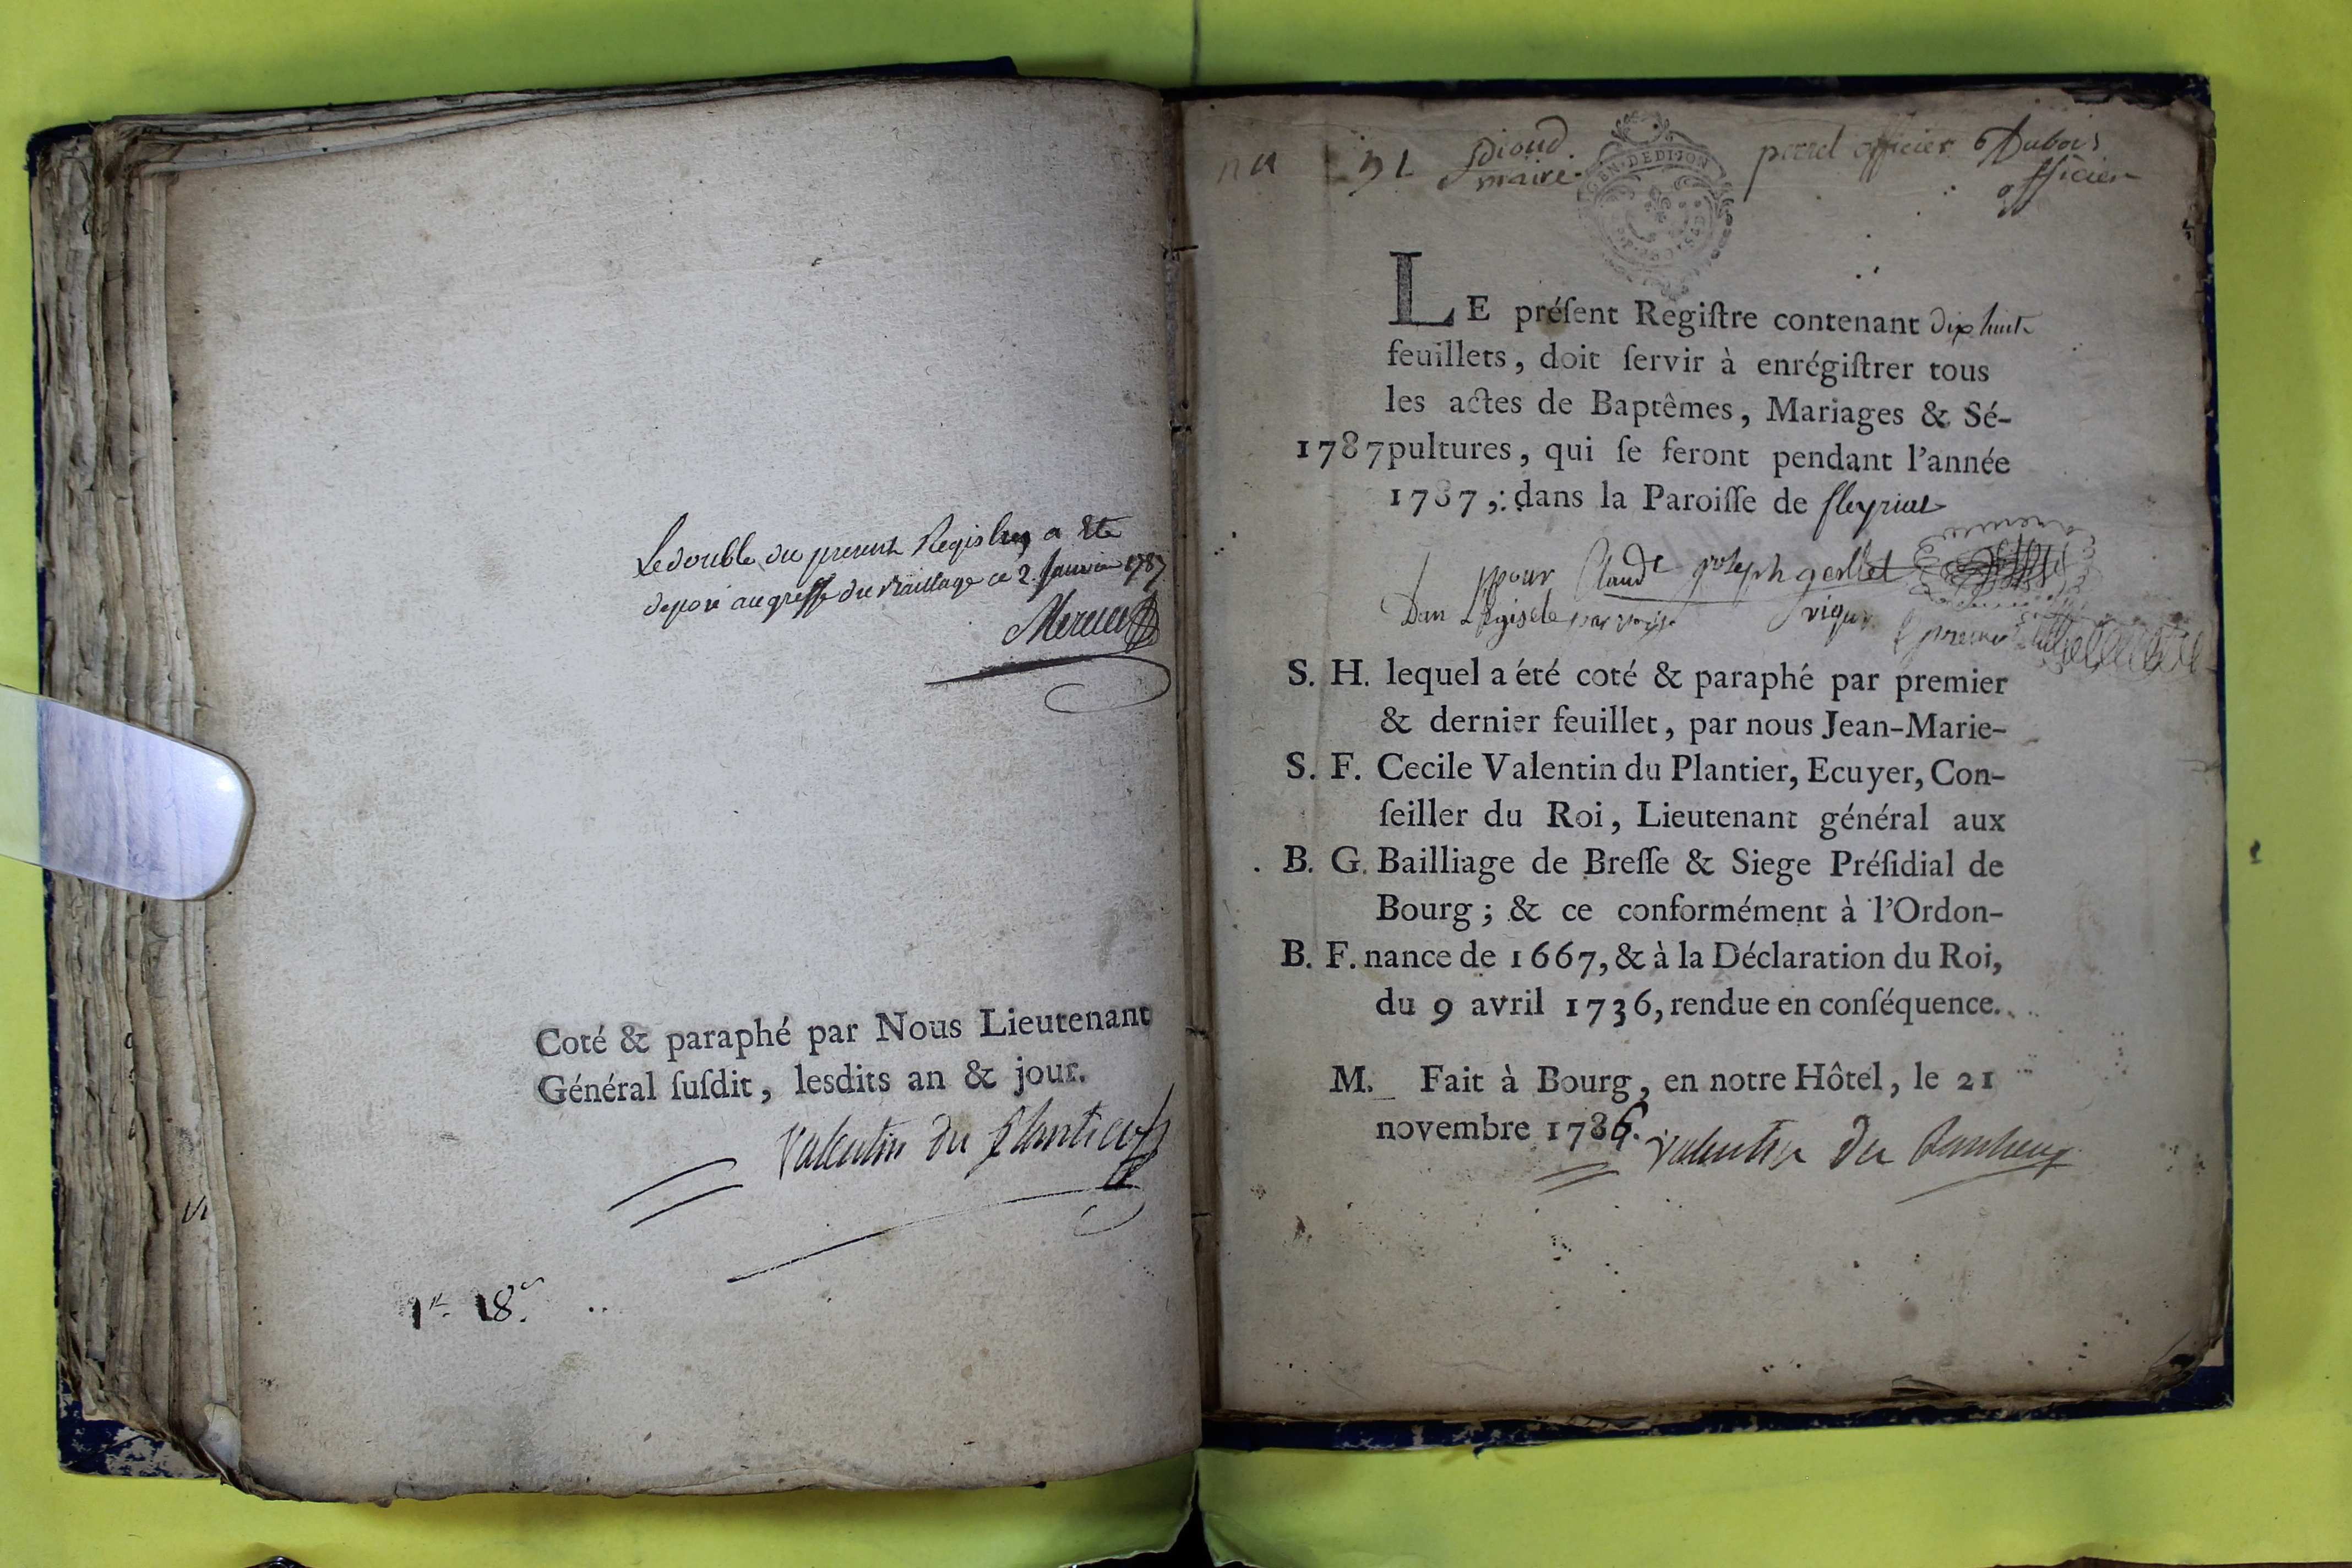 Le double du present Registre a été
deposé au greffe du Bailliage ce 2. Janvier 1787
Coté & paraphé par Nous Lieutenant
Général ſuſdit, lesdits an & jour.
Valentin du Plantier
1er. 18e.
maire. perret officier Dubois
officier
GEN. DE DIJON
LE préſent Regiſtre contenant dix huit
feuillets, doit ſervir à enrégiſtrer tous
les actes de Baptêmes, Mariages & Sé-
1787 pultures, qui ſe feront pendant l'année
1787, : dans la Paroiſſe de fleyriat
pour Claude joseph
S. H. lequel a été coté & paraphé par premier
& dernier feuillet, par nous Jean-Marie-
S. F. Cecile Valentin du Plantier, Ecuyer, Con-
ſeiller du Roi, Lieutenant général aux
B. G. Bailliage de Breſſe & Siege Préſidial de
Bourg ; & ce conformément à l'Ordon-
B. F. nance de 1667, & à la Déclaration du Roi,
du 9 avril 1736, rendue en conſéquence.
M. Fait à Bourg, en notre Hôtel, le 21
novembre 1786. Valentin du